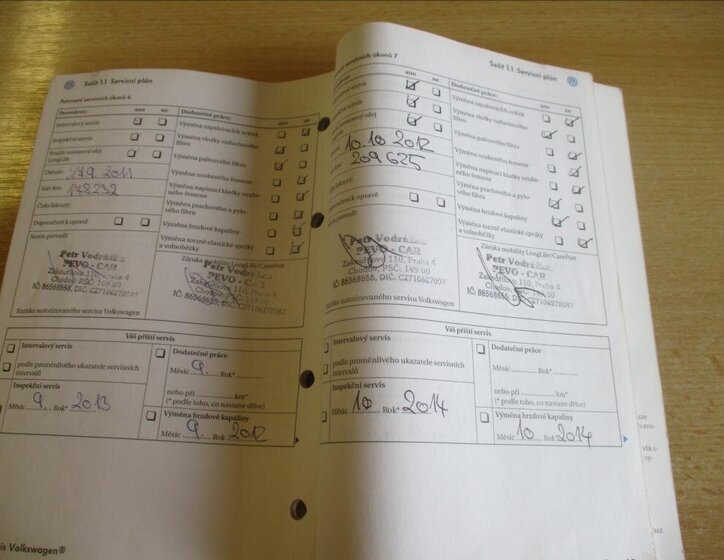 Sešit 1.1 Servisní plán
Potvrzení servisních úkonů 6
Provedeno:
ano
ne
Intervalový servis
Inspekční servis
Použit motorový olej
LongLife
Datum:
27.9.2011
Stav km:
178232
Číslo faktury:
Doporučení k opravě
Servis provedl:
Petr Vodrážka
PEVO - CAR
Zakouřilova 110, Praha 4
Chodov, PSČ. 149 00
IČ: 86568655, DIČ: CZ7106270087
Razítko autorizovaného servisu Volkswagen
Dodatečné práce:
ano
ne
Výměna zapalovacích svíček
Výměna vložky vzduchového
filtru
Výměna palivového filtru
Výměna ozubeného řemene
Výměna napínací kladky ozube-
ného řemene
Výměna prachového a pylo-
vého filtru
Výměna brzdové kapaliny
Výměna torzně elastické spojky
a volnoběžky
Záruka mobility LongLife/CarePort
Petr Vodrážka
PEVO - CAR
Zakouřilova 110, Praha 4
Chodov, PSČ. 149 00
IČ: 86568655, DIČ: CZ7106270087
Váš příští servis
Intervalový servis
podle proměnlivého ukazatele servisních
intervalů
Inspekční servis
Měsíc 9. Rok* 2013
Dodatečné práce
Měsíc 9. Rok*
nebo při ........ km*
(* podle toho, co nastane dříve)
Výměna brzdové kapaliny
Měsíc 9. Rok 2012
is Volkswagen®
Sešit 1.1 Servisní plán
servisních úkonů 7
ano
ne
servis
servis
olej
10.10 2012
209625
faktury:
í k opravě
provedl:
Petr Vodrážka
PEVO - CAR
Zakouřilova 110, Praha 4
Chodov, PSČ. 149 00
IČ: 86568655, DIČ: CZ7106270087
Razítko autorizovaného servisu Volkswagen
Dodatečné práce:
ano
ne
Výměna zapalovacích svíček
Výměna vložky vzduchového
filtru
Výměna palivového filtru
Výměna ozubeného řemene
Výměna napínací kladky ozube-
ného řemene
Výměna prachového a pylo-
vého filtru
Výměna brzdové kapaliny
Výměna torzně elastické spojky
a volnoběžky
Záruka mobility LongLife/CarePort
Petr Vodrážka
PEVO - CAR
Zakouřilova 110, Praha 4
Chodov, PSČ. 149 00
IČ: 86568655, DIČ: CZ7106270087
Váš příští servis
Intervalový servis
podle proměnlivého ukazatele servisních
intervalů
Inspekční servis
Měsíc 10 Rok* 2014
Dodatečné práce
Měsíc ........ Rok*
nebo při ........ km*
(* podle toho, co nastane dříve)
Výměna brzdové kapaliny
Měsíc 10 Rok 2014